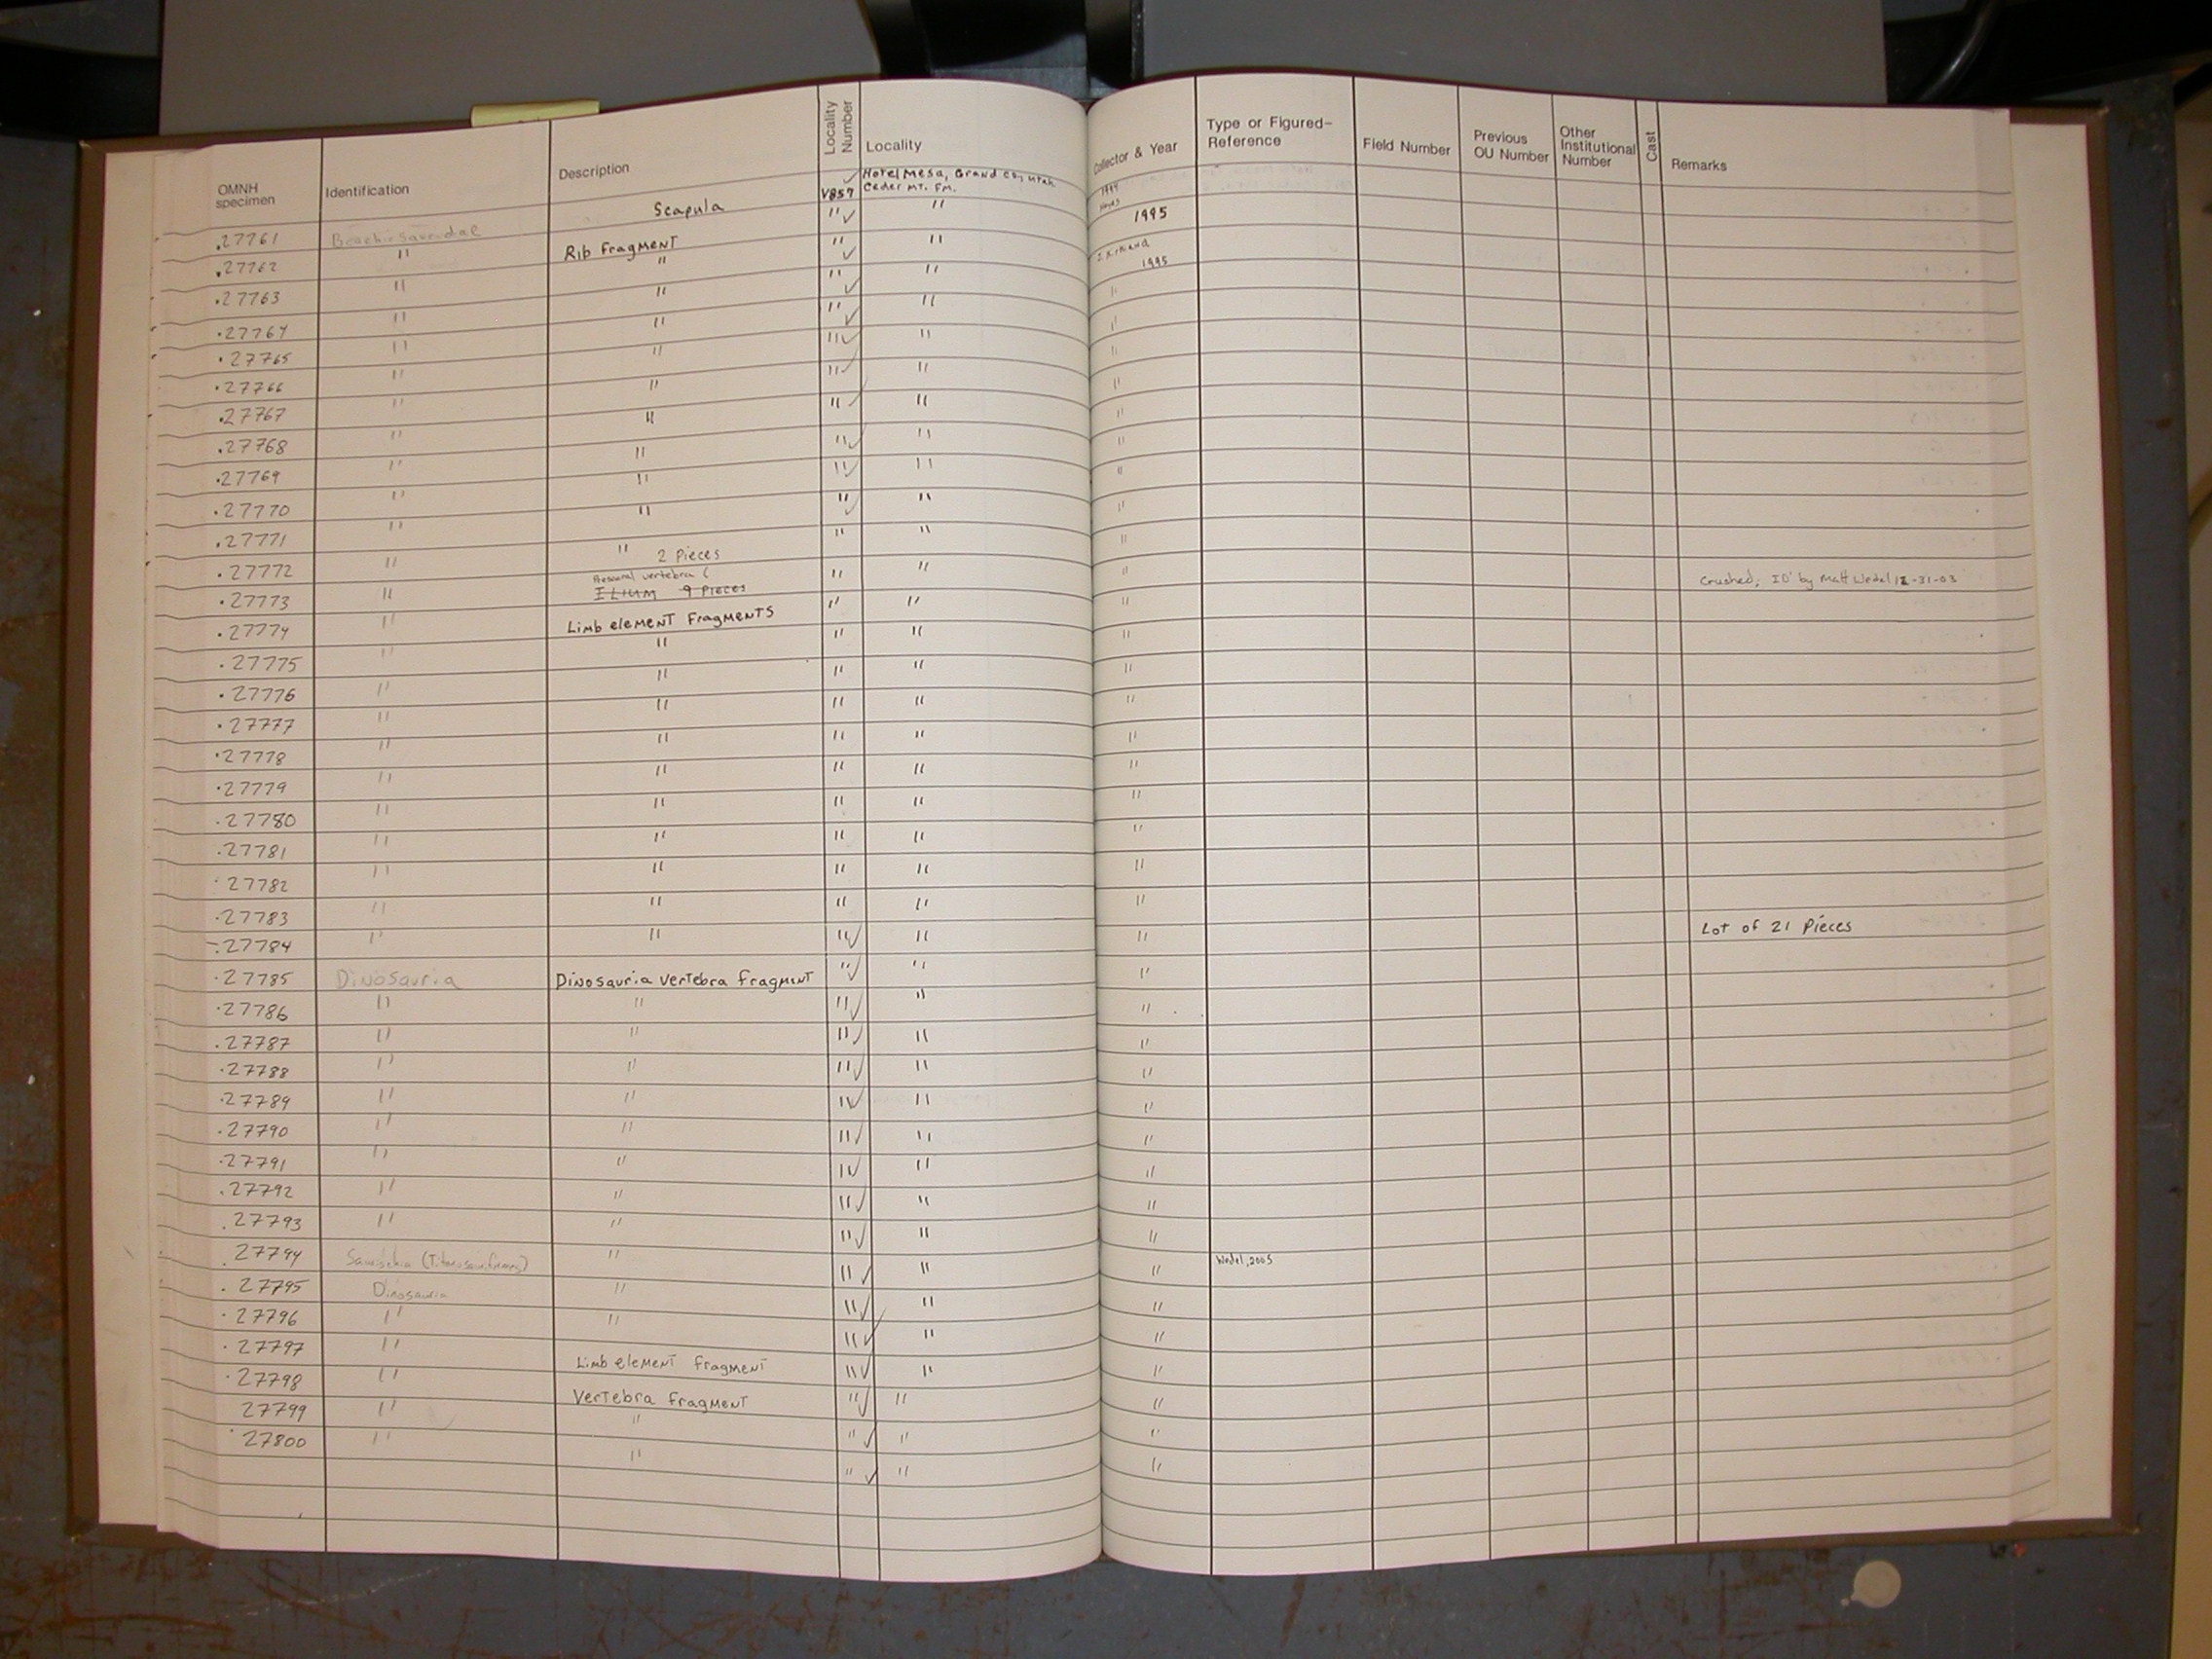 OMNH specimen | Identification | Description | Locality Number | Locality | Collector & Year | Type or Figured-Reference | Field Number | Previous OU Number | Other Institutional Number | Cast | Remarks
.27761 Brachiosauridae Scapula V857 Hotel Mesa, Grand Co, Utah Cedar MT. FM. 1994
.27762 " Rib fragment " " 1995
.27763 " " " " J. Kirkland 1995
.27764 " " " " "
.27765 " " " " "
.27766 " " " " "
.27767 " " " " "
.27768 " " " " "
.27769 " " " " "
.27770 " " " " "
.27771 " " " " "
.27772 " " 2 pieces " " "
.27773 " vertebra ILIUM 9 pieces " " " Crushed; ID' by Matt Wedel 12-31-03
.27774 " Limb element fragments " " "
.27775 " " " " "
.27776 " " " " "
.27777 " " " " "
.27778 " " " " "
.27779 " " " " "
.27780 " " " " "
.27781 " " " " "
.27782 " " " " "
.27783 " " " " "
.27784 " " " " " Lot of 21 pieces
.27785 Dinosauria Dinosauria vertebra fragment " " "
.27786 " " " " "
.27787 " " " " "
.27788 " " " " "
.27789 " " " " "
.27790 " " " " "
.27791 " " " " "
.27792 " " " " "
.27793 " " " " "
.27794 Saurischia (Titanosauriformes) " " " " Wedel, 2005
.27795 Dinosauria " " " "
.27796 " " " " "
.27797 " " " " "
.27798 " Limb element fragment " " "
27799 " Vertebra fragment " " "
27800 " " " " "
" " " "